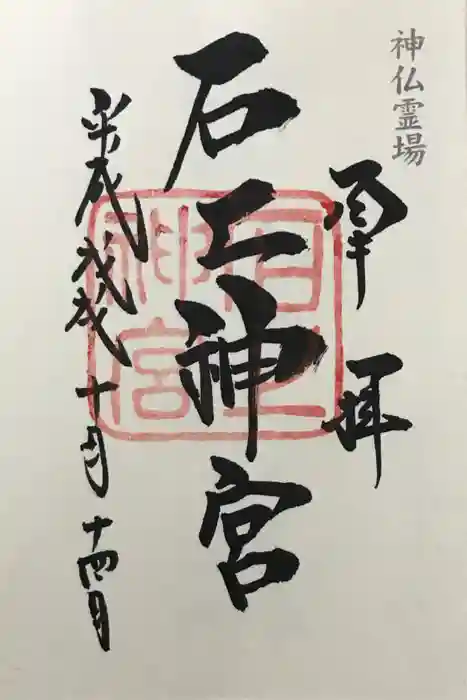 神仏霊場
奉拝
石上神宮
平成戊戌十月十四日
石上神宮